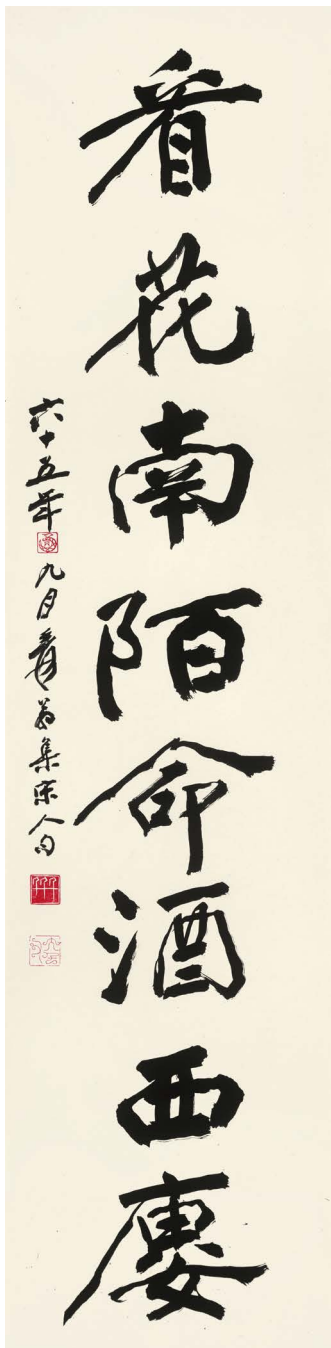 看花南陌命酒西廔
六十五年九月爰翁集宋人句